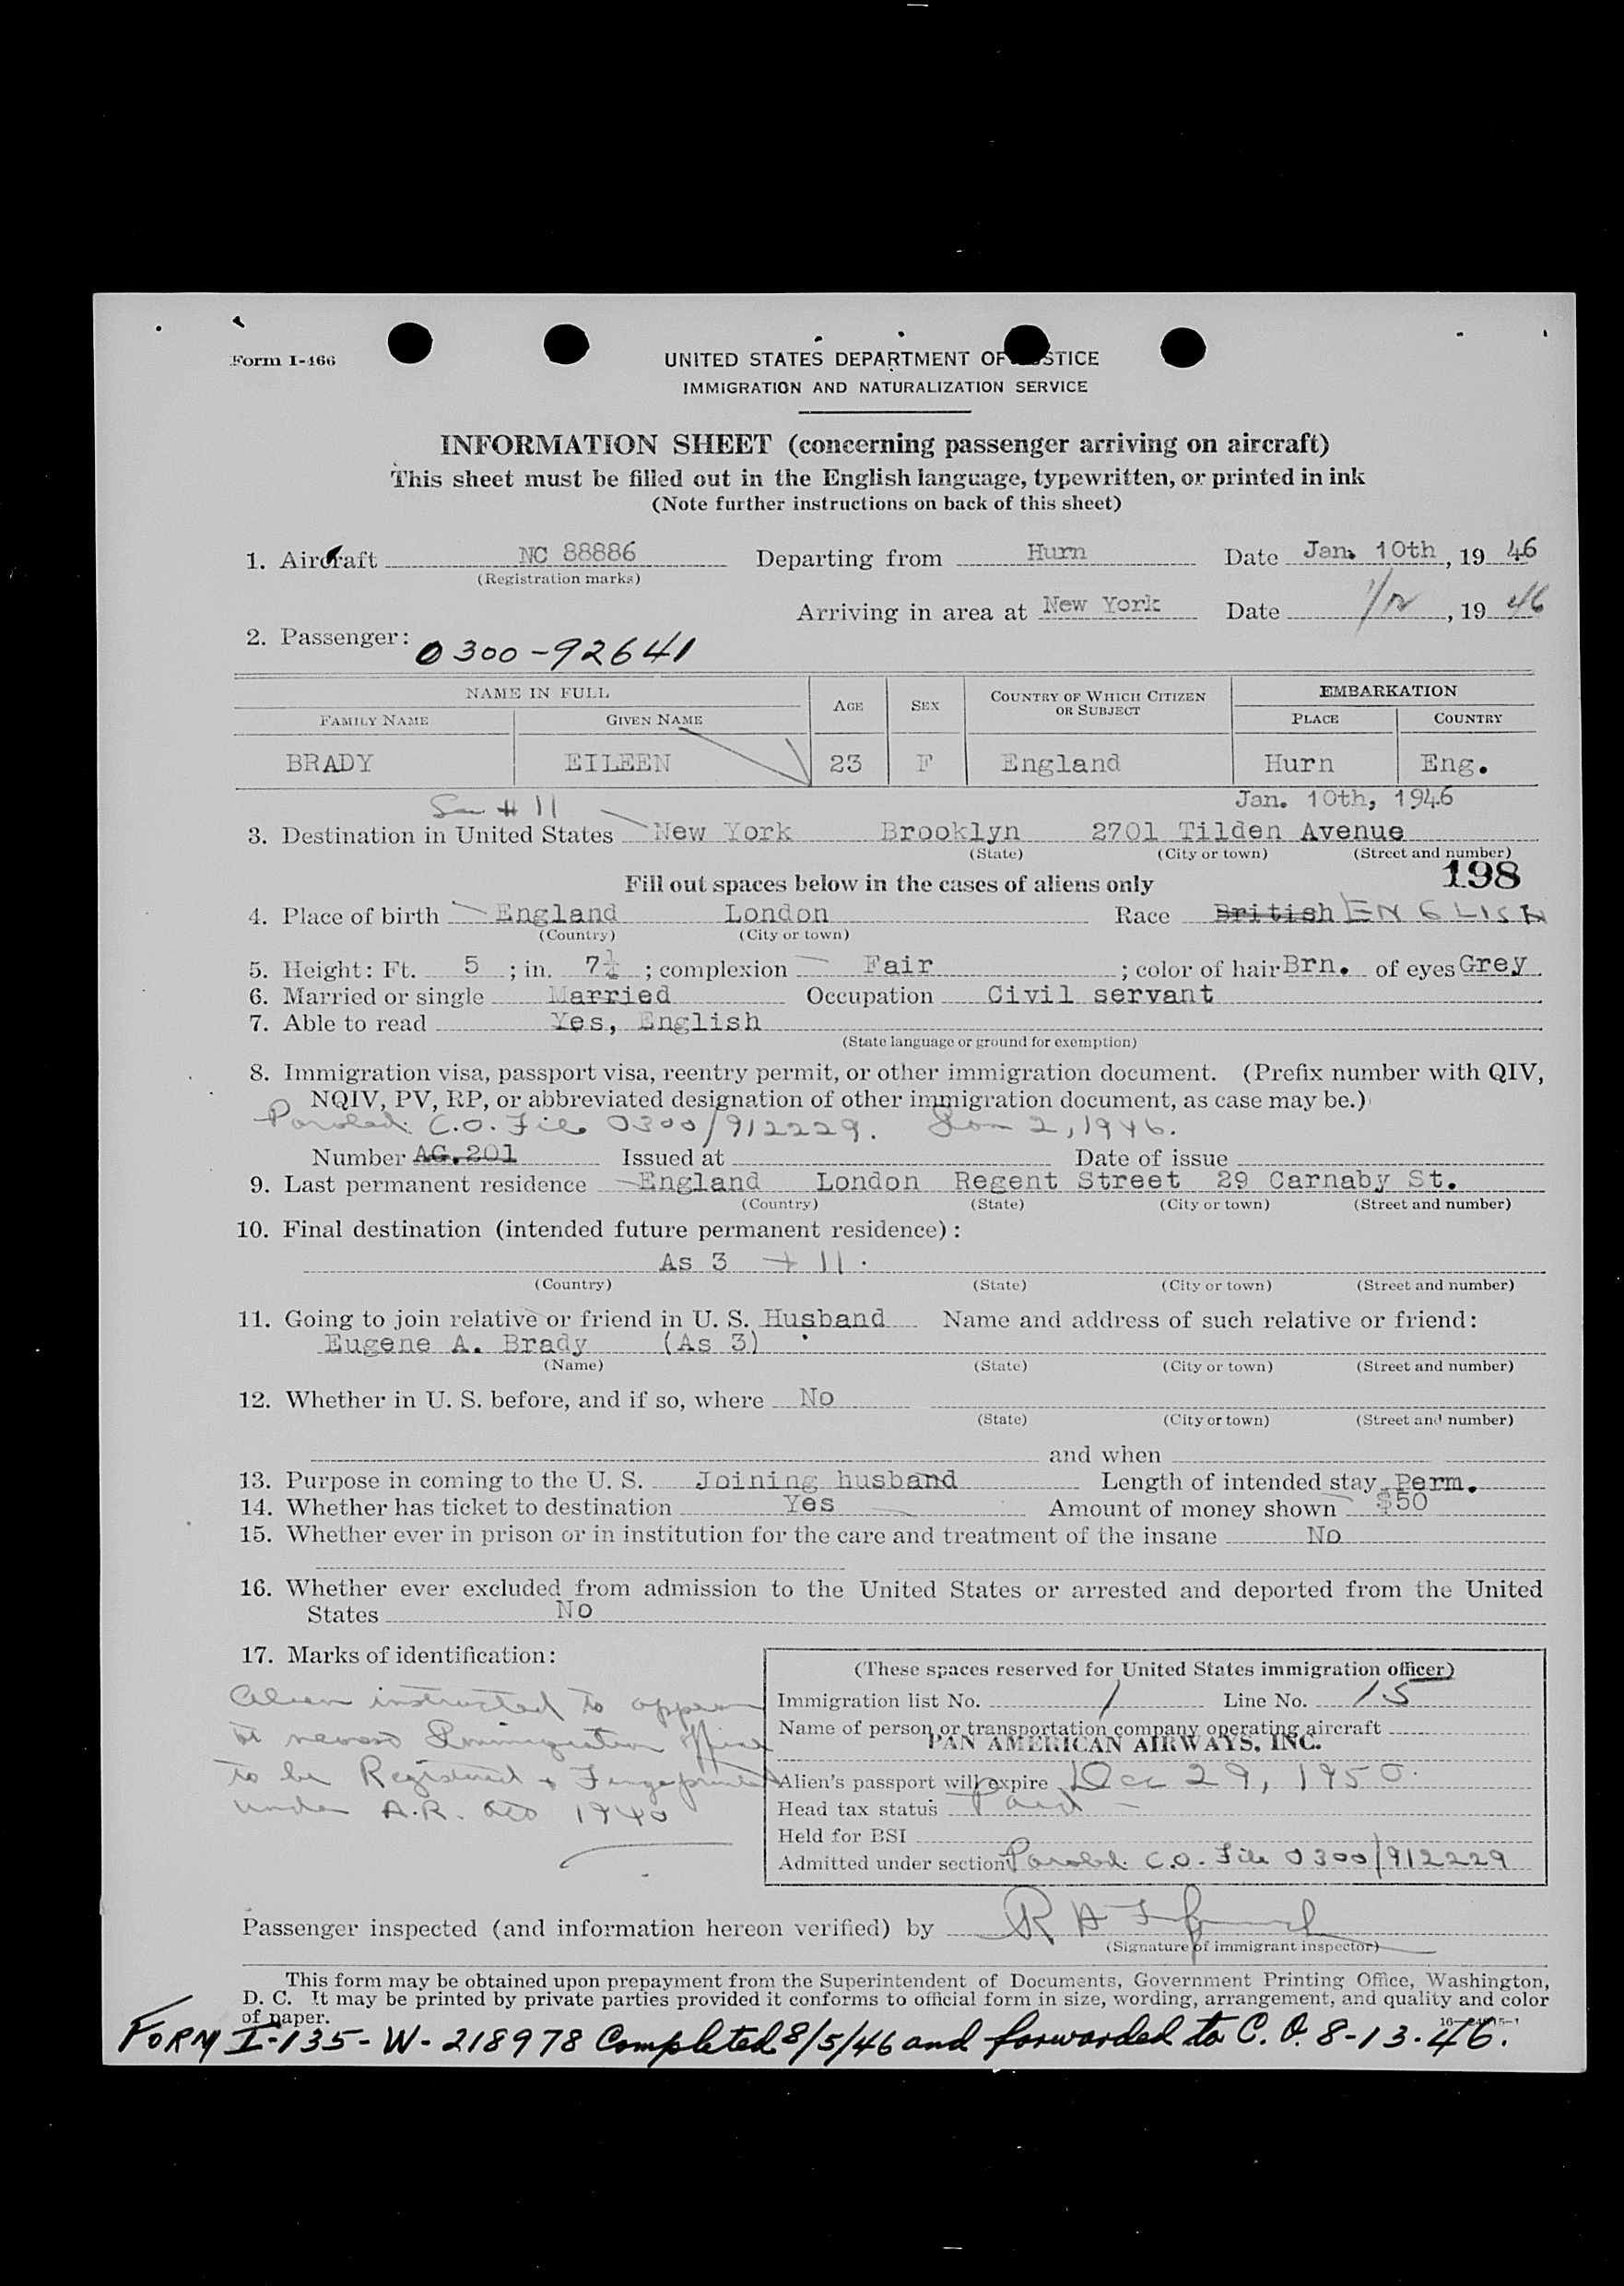 Form I-466
UNITED STATES DEPARTMENT OF STICE
IMMIGRATION AND NATURALIZATION SERVICE
INFORMATION SHEET (concerning passenger arriving on aircraft)
This sheet must be filled out in the English language, typewritten, or printed in ink
(Note further instructions on back of this sheet)
1. Aircraft NC 88886 Departing from Hurn Date Jan. 10th, 19 46
(Registration marks)
Arriving in area at New York Date 19 46
2. Passenger: 0300-92641
NAME IN FULL AGE SEX COUNTRY OF WHICH CITIZEN OR SUBJECT EMBARKATION
FAMILY NAME GIVEN NAME PLACE COUNTRY
BRADY EILEEN 23 F England Hurn Eng.
Jan. 10th, 1946
# 11
3. Destination in United States New York Brooklyn 2701 Tilden Avenue
(State) (City or town) (Street and number)
198
Fill out spaces below in the cases of aliens only
4. Place of birth England London Race British ENGLISH
(Country) (City or town)
5. Height: Ft. 5 ; in. 7½ ; complexion Fair ; color of hair Brn. of eyes Grey
6. Married or single Married Occupation Civil servant
7. Able to read Yes, English
(State language or ground for exemption)
8. Immigration visa, passport visa, reentry permit, or other immigration document. (Prefix number with QIV,
NQIV, PV, RP, or abbreviated designation of other immigration document, as case may be.)
Paroled. C.O. File 0300/912229. Jan 2, 1946.
Number AG.201 Issued at Date of issue
9. Last permanent residence England London Regent Street 29 Carnaby St.
(Country) (State) (City or town) (Street and number)
10. Final destination (intended future permanent residence):
As 3 + 11.
(Country) (State) (City or town) (Street and number)
11. Going to join relative or friend in U. S. Husband Name and address of such relative or friend:
Eugene A. Brady (As 3)
(Name) (State) (City or town) (Street and number)
12. Whether in U. S. before, and if so, where No
(State) (City or town) (Street and number)
and when
13. Purpose in coming to the U. S. Joining husband Length of intended stay Perm.
14. Whether has ticket to destination Yes Amount of money shown $50
15. Whether ever in prison or in institution for the care and treatment of the insane No
16. Whether ever excluded from admission to the United States or arrested and deported from the United
States No
17. Marks of identification:
Alien instructed to appear
at nearest Immigration Office
to be Registered & Fingerprinted
under A.R. Act 1940
(These spaces reserved for United States immigration officer)
Immigration list No. 1 Line No. 15
Name of person or transportation company operating aircraft
PAN AMERICAN AIRWAYS, INC.
Alien's passport will expire Dec 29, 1950.
Head tax status Paid
Held for BSI
Admitted under section Paroled. C.O. File 0300/912229
Passenger inspected (and information hereon verified) by
(Signature of immigrant inspector)
This form may be obtained upon prepayment from the Superintendent of Documents, Government Printing Office, Washington,
D. C. It may be printed by private parties provided it conforms to official form in size, wording, arrangement, and quality and color
of paper.
FORM I-135-W-218978 Completed 8/5/46 and forwarded to C. O. 8-13-46.